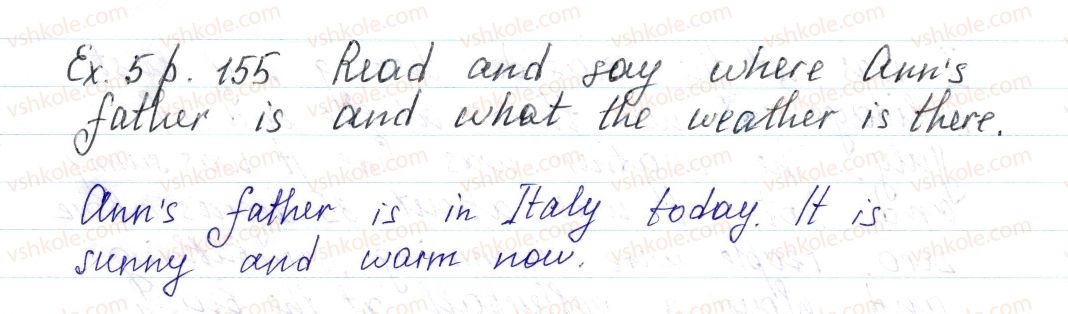 Ex. 5 p. 155 Read and say where Ann's
father is and what the weather is there.
Ann's father is in Italy today. It is
sunny and warm now.